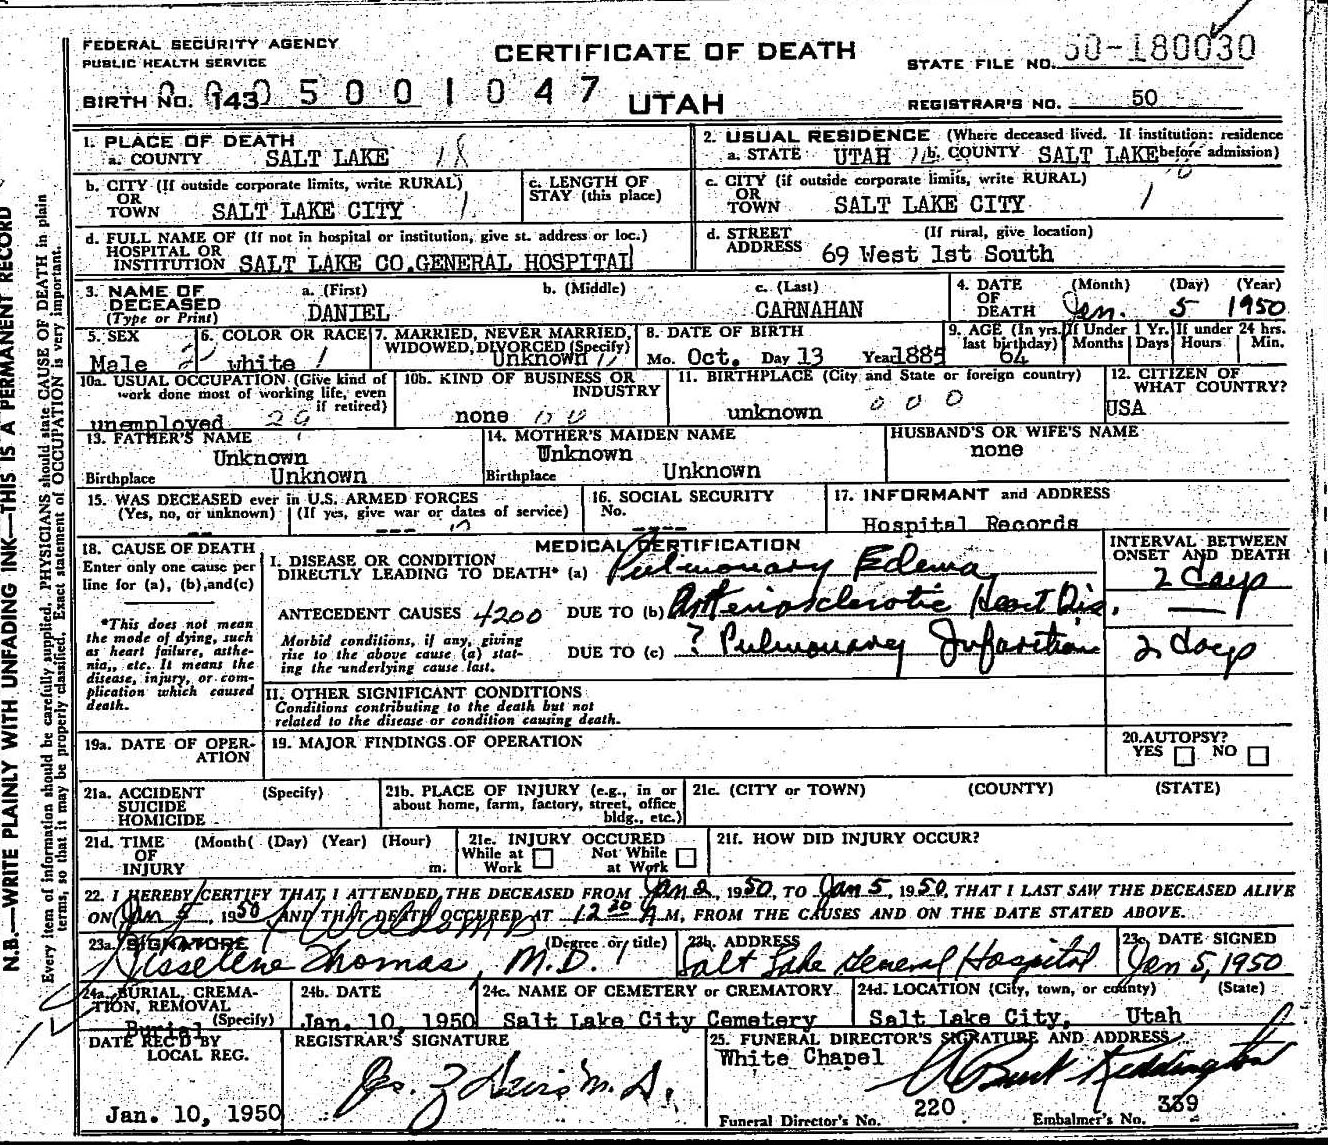 FEDERAL SECURITY AGENCY
PUBLIC HEALTH SERVICE
CERTIFICATE OF DEATH
STATE FILE NO. 50-180030
BIRTH NO. 143 0 5 0 0 1 0 4 7
UTAH
REGISTRAR'S NO. 50
1. PLACE OF DEATH
a. COUNTY SALT LAKE 18
2. USUAL RESIDENCE (Where deceased lived. If institution: residence
a. STATE UTAH b. COUNTY SALT LAKE before admission)
b. CITY (If outside corporate limits, write RURAL)
OR
TOWN SALT LAKE CITY 1
c. LENGTH OF
STAY (this place)
c. CITY (if outside corporate limits, write RURAL)
OR
TOWN SALT LAKE CITY 1
d. FULL NAME OF (If not in hospital or institution, give st. address or loc.)
HOSPITAL OR
INSTITUTION SALT LAKE CO.GENERAL HOSPITAL
d. STREET (If rural, give location)
ADDRESS 69 West 1st South
3. NAME OF a. (First) b. (Middle) c. (Last)
DECEASED
(Type or Print) DANIEL CARNAHAN
4. DATE (Month) (Day) (Year)
OF
DEATH Jan. 5 1950
5. SEX
Male 2
6. COLOR OR RACE
white 1
7. MARRIED, NEVER MARRIED,
WIDOWED, DIVORCED (Specify)
Unknown
8. DATE OF BIRTH
Mo. Oct. Day 13 Year 1885
9. AGE (In yrs.
last birthday)
64
If Under 1 Yr.
Months Days
If under 24 hrs.
Hours Min.
10a. USUAL OCCUPATION (Give kind of
work done most of working life, even
if retired)
unemployed 29
10b. KIND OF BUSINESS OR
INDUSTRY
none
11. BIRTHPLACE (City and State or foreign country)
unknown 0 0 0
12. CITIZEN OF
WHAT COUNTRY?
USA
13. FATHER'S NAME
Unknown
Birthplace Unknown
14. MOTHER'S MAIDEN NAME
Unknown
Birthplace Unknown
HUSBAND'S OR WIFE'S NAME
none
15. WAS DECEASED ever in U.S. ARMED FORCES
(Yes, no, or unknown) (If yes, give war or dates of service)
-- ---
16. SOCIAL SECURITY
No. ----
17. INFORMANT and ADDRESS
Hospital Records
18. CAUSE OF DEATH
Enter only one cause per
line for (a), (b), and (c)
*This does not mean
the mode of dying, such
as heart failure, asthe-
nia,, etc. It means the
disease, injury, or com-
plication which caused
death.
MEDICAL CERTIFICATION
I. DISEASE OR CONDITION
DIRECTLY LEADING TO DEATH* (a) Pulmonary Edema
ANTECEDENT CAUSES 4200 DUE TO (b) Arteriosclerotic Heart Dis.
Morbid conditions, if any, giving
rise to the above cause (a) stat-
ing the underlying cause last.
DUE TO (c) ? Pulmonary Infarction
INTERVAL BETWEEN
ONSET AND DEATH
2 days
—
2 days
II. OTHER SIGNIFICANT CONDITIONS
Conditions contributing to the death but not
related to the disease or condition causing death.
19a. DATE OF OPER-
ATION
19. MAJOR FINDINGS OF OPERATION
20. AUTOPSY?
YES NO
21a. ACCIDENT (Specify)
SUICIDE
HOMICIDE
21b. PLACE OF INJURY (e.g., in or
about home, farm, factory, street, office
bldg., etc.)
21c. (CITY or TOWN) (COUNTY) (STATE)
21d. TIME (Month( (Day) (Year) (Hour)
OF
INJURY m.
21e. INJURY OCCURED
While at Not While
Work at Work
21f. HOW DID INJURY OCCUR?
22. I HEREBY CERTIFY THAT I ATTENDED THE DECEASED FROM Jan 2, 1950, TO Jan 5, 1950, THAT I LAST SAW THE DECEASED ALIVE
ON Jan 5, 1950 AND THAT DEATH OCCURED AT 12 20 A M, FROM THE CAUSES AND ON THE DATE STATED ABOVE.
23a. SIGNATURE (Degree or title)
Thomas, M.D.
23b. ADDRESS
Salt Lake General Hospital
23c. DATE SIGNED
Jan 5, 1950
24a. BURIAL, CREMA-
TION, REMOVAL
(Specify)
Burial
24b. DATE
Jan. 10, 1950
24c. NAME OF CEMETERY or CREMATORY
Salt Lake City Cemetery
24d. LOCATION (City, town, or county) (State)
Salt Lake City, Utah
DATE REC'D BY
LOCAL REG.
Jan. 10, 1950
REGISTRAR'S SIGNATURE
25. FUNERAL DIRECTOR'S SIGNATURE AND ADDRESS
White Chapel
Funeral Director's No. 220 Embalmer's No. 339
N.B.—WRITE PLAINLY WITH UNFADING INK—THIS IS A PERMANENT RECORD
Every item of information should be carefully supplied. PHYSICIANS should state CAUSE OF DEATH in plain
terms, so that it may be properly classified. Exact statement of OCCUPATION is very important.